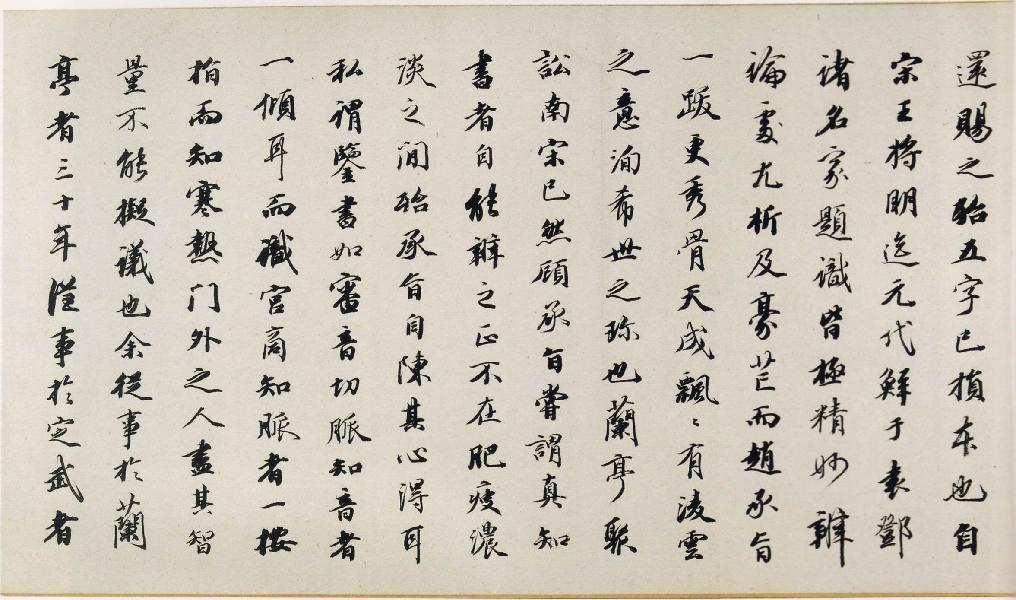 還賜之殆五字已損本也自
宋王將明迄元代鮮于袁鄧
諸名家題識皆極精妙辨
論處尤析及豪芒而趙承旨
一跋更秀骨天成飄〻有凌雲
之意洵希世之珎也蘭亭聚
訟南宋已然顧承旨嘗謂真知
書者自能辨之正不在肥瘦濃
淡之間殆承旨自陳其心得耳
私謂鑒書如審音切脈知音者
一傾耳而識宮商知脈者一按
指而知寒熱門外之人盡其智
量不能擬議也余從事於蘭
亭者三十年從事於定武者